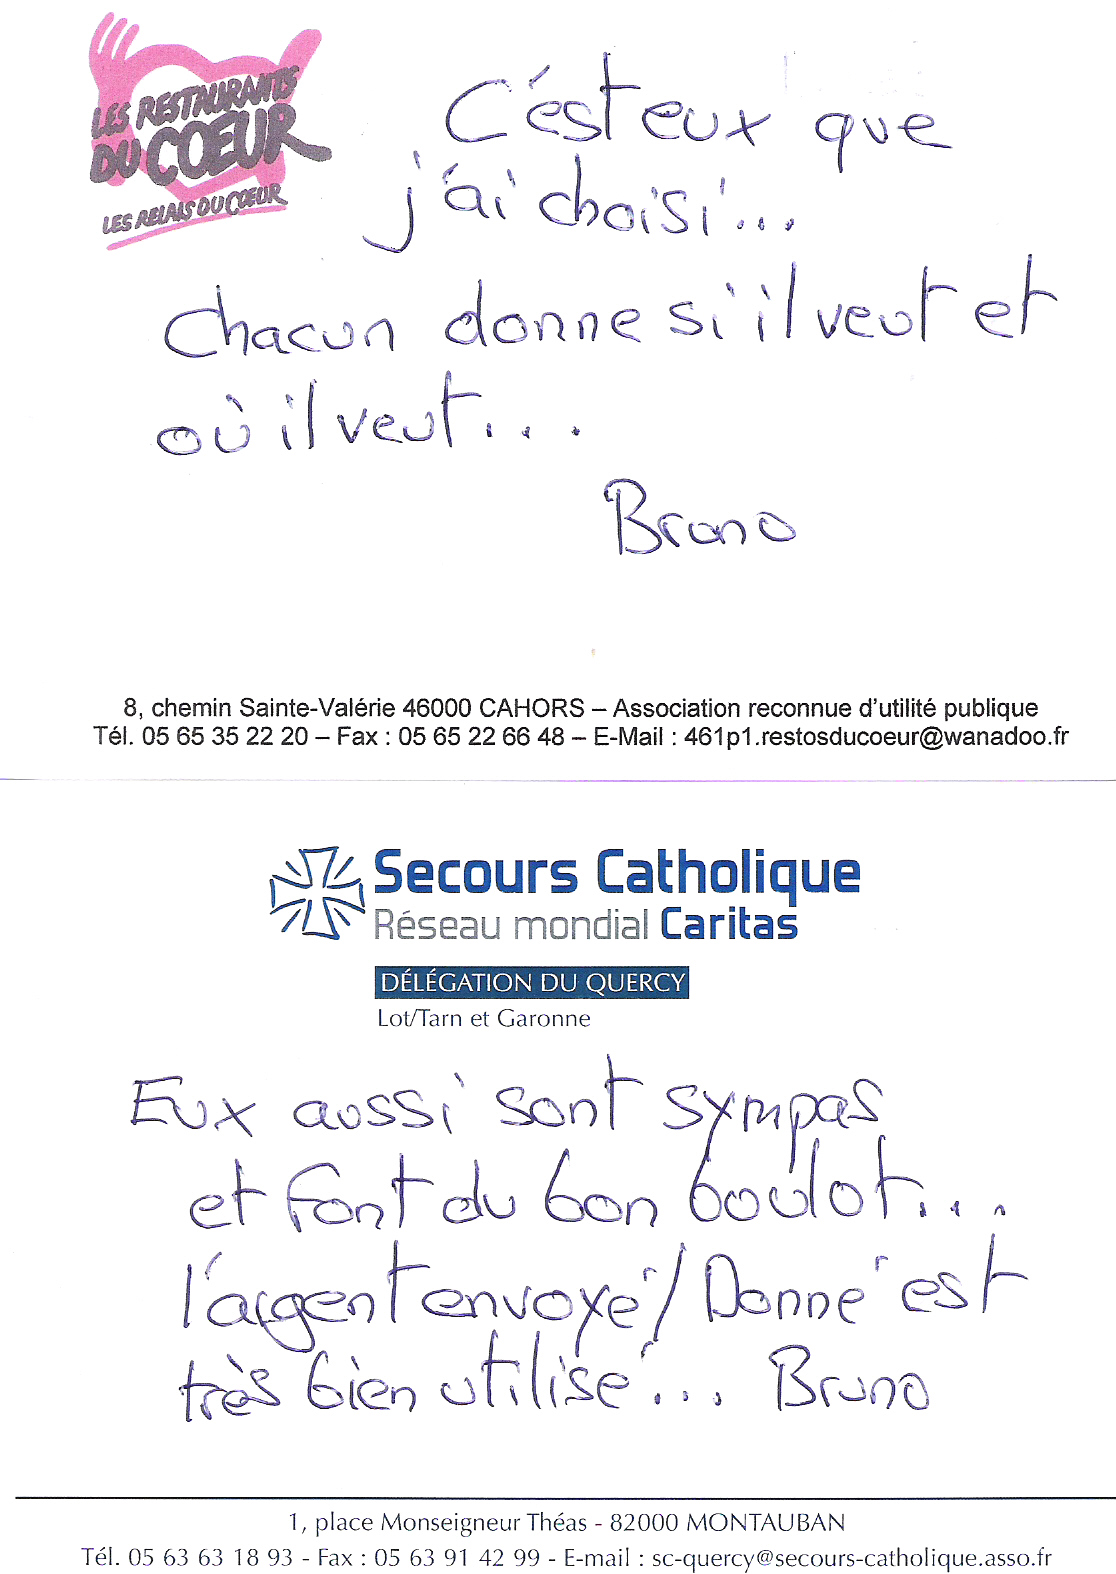 LES RESTAURANTS
DU COEUR
LES RELAIS DU COEUR
C'est eux que
j'ai choisi...
Chacun donne si il veut et
où il veut...
Bruno
8, chemin Sainte-Valérie 46000 CAHORS – Association reconnue d'utilité publique
Tél. 05 65 35 22 20 – Fax : 05 65 22 66 48 – E-Mail : 461p1.restosducoeur@wanadoo.fr
Secours Catholique
Réseau mondial Caritas
DÉLÉGATION DU QUERCY
Lot/Tarn et Garonne
Eux aussi sont sympas
et font du bon boulot...
l'argent envoyé/Donné est
très bien utilisé... Bruno
1, place Monseigneur Théas - 82000 MONTAUBAN
Tél. 05 63 63 18 93 - Fax : 05 63 91 42 99 - E-mail : sc-quercy@secours-catholique.asso.fr